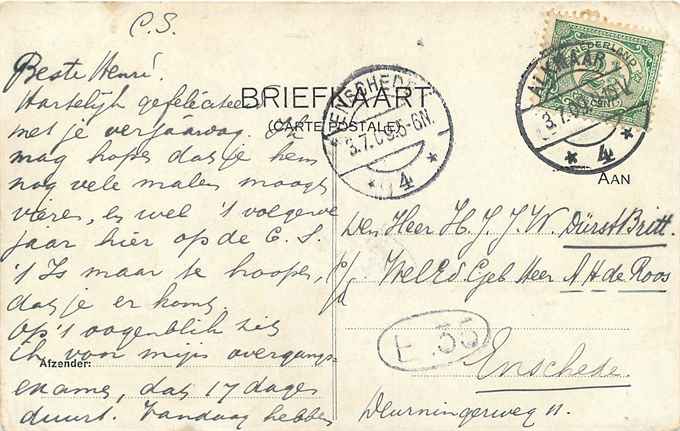 C.S.
Beste Henri!
Hartelijk gefeliciteerd
met je verjaardag. Ik
mag hopen dat je hem
nog vele malen moogt
vieren, en wel 't volgende
jaar hier op de C.S.
't Is maar te hoopen,
dat je er komt.
Op 't oogenblik zit
ik voor mijn overgangs-
examen, dat 17 dagen
duurt. Vandaag hebben
Afzender:
BRIEFKAART
(CARTE POSTALE)
ENSCHEDE
3.7. 5-6N.
4
NEDERLAND
CENT
ALKMAAR
3.7.
4
AAN
Den Heer H.J.J.W. Dürst Britt.
p/a WelEd Geb Heer A H de Roos
Enschede.
Deurningerweg 11.
E.35